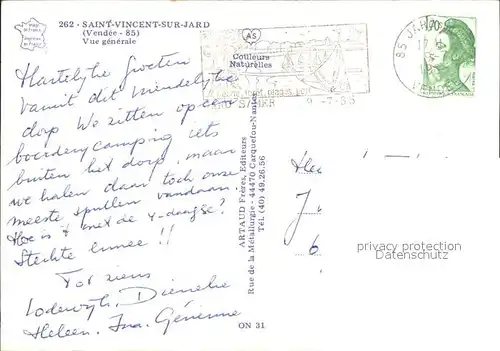 262 - SAINT-VINCENT-SUR-JARD
(Vendée - 85)
Vue générale
Hartelijke groeten
vanuit dit vriendelijke
dorp We zitten op een
boerderycamping iets
buiten het dorp, maar
we halen daar toch onze
meeste spullen vandaan.
Hoe is 't met de 4-daagse?
Sterkte ermee !!
Tot ziens
Lodewijk, Dieneke
Heleen,
AS
Couleurs
Naturelles
ARTAUD Frères, Editeurs
Rue de la Métallurgie - 44470 Carquefou-Nantes
Tél. (40) 49.26.56
ON 31
85 JARD
0,70
J
6
privacy protection
Datenschutz